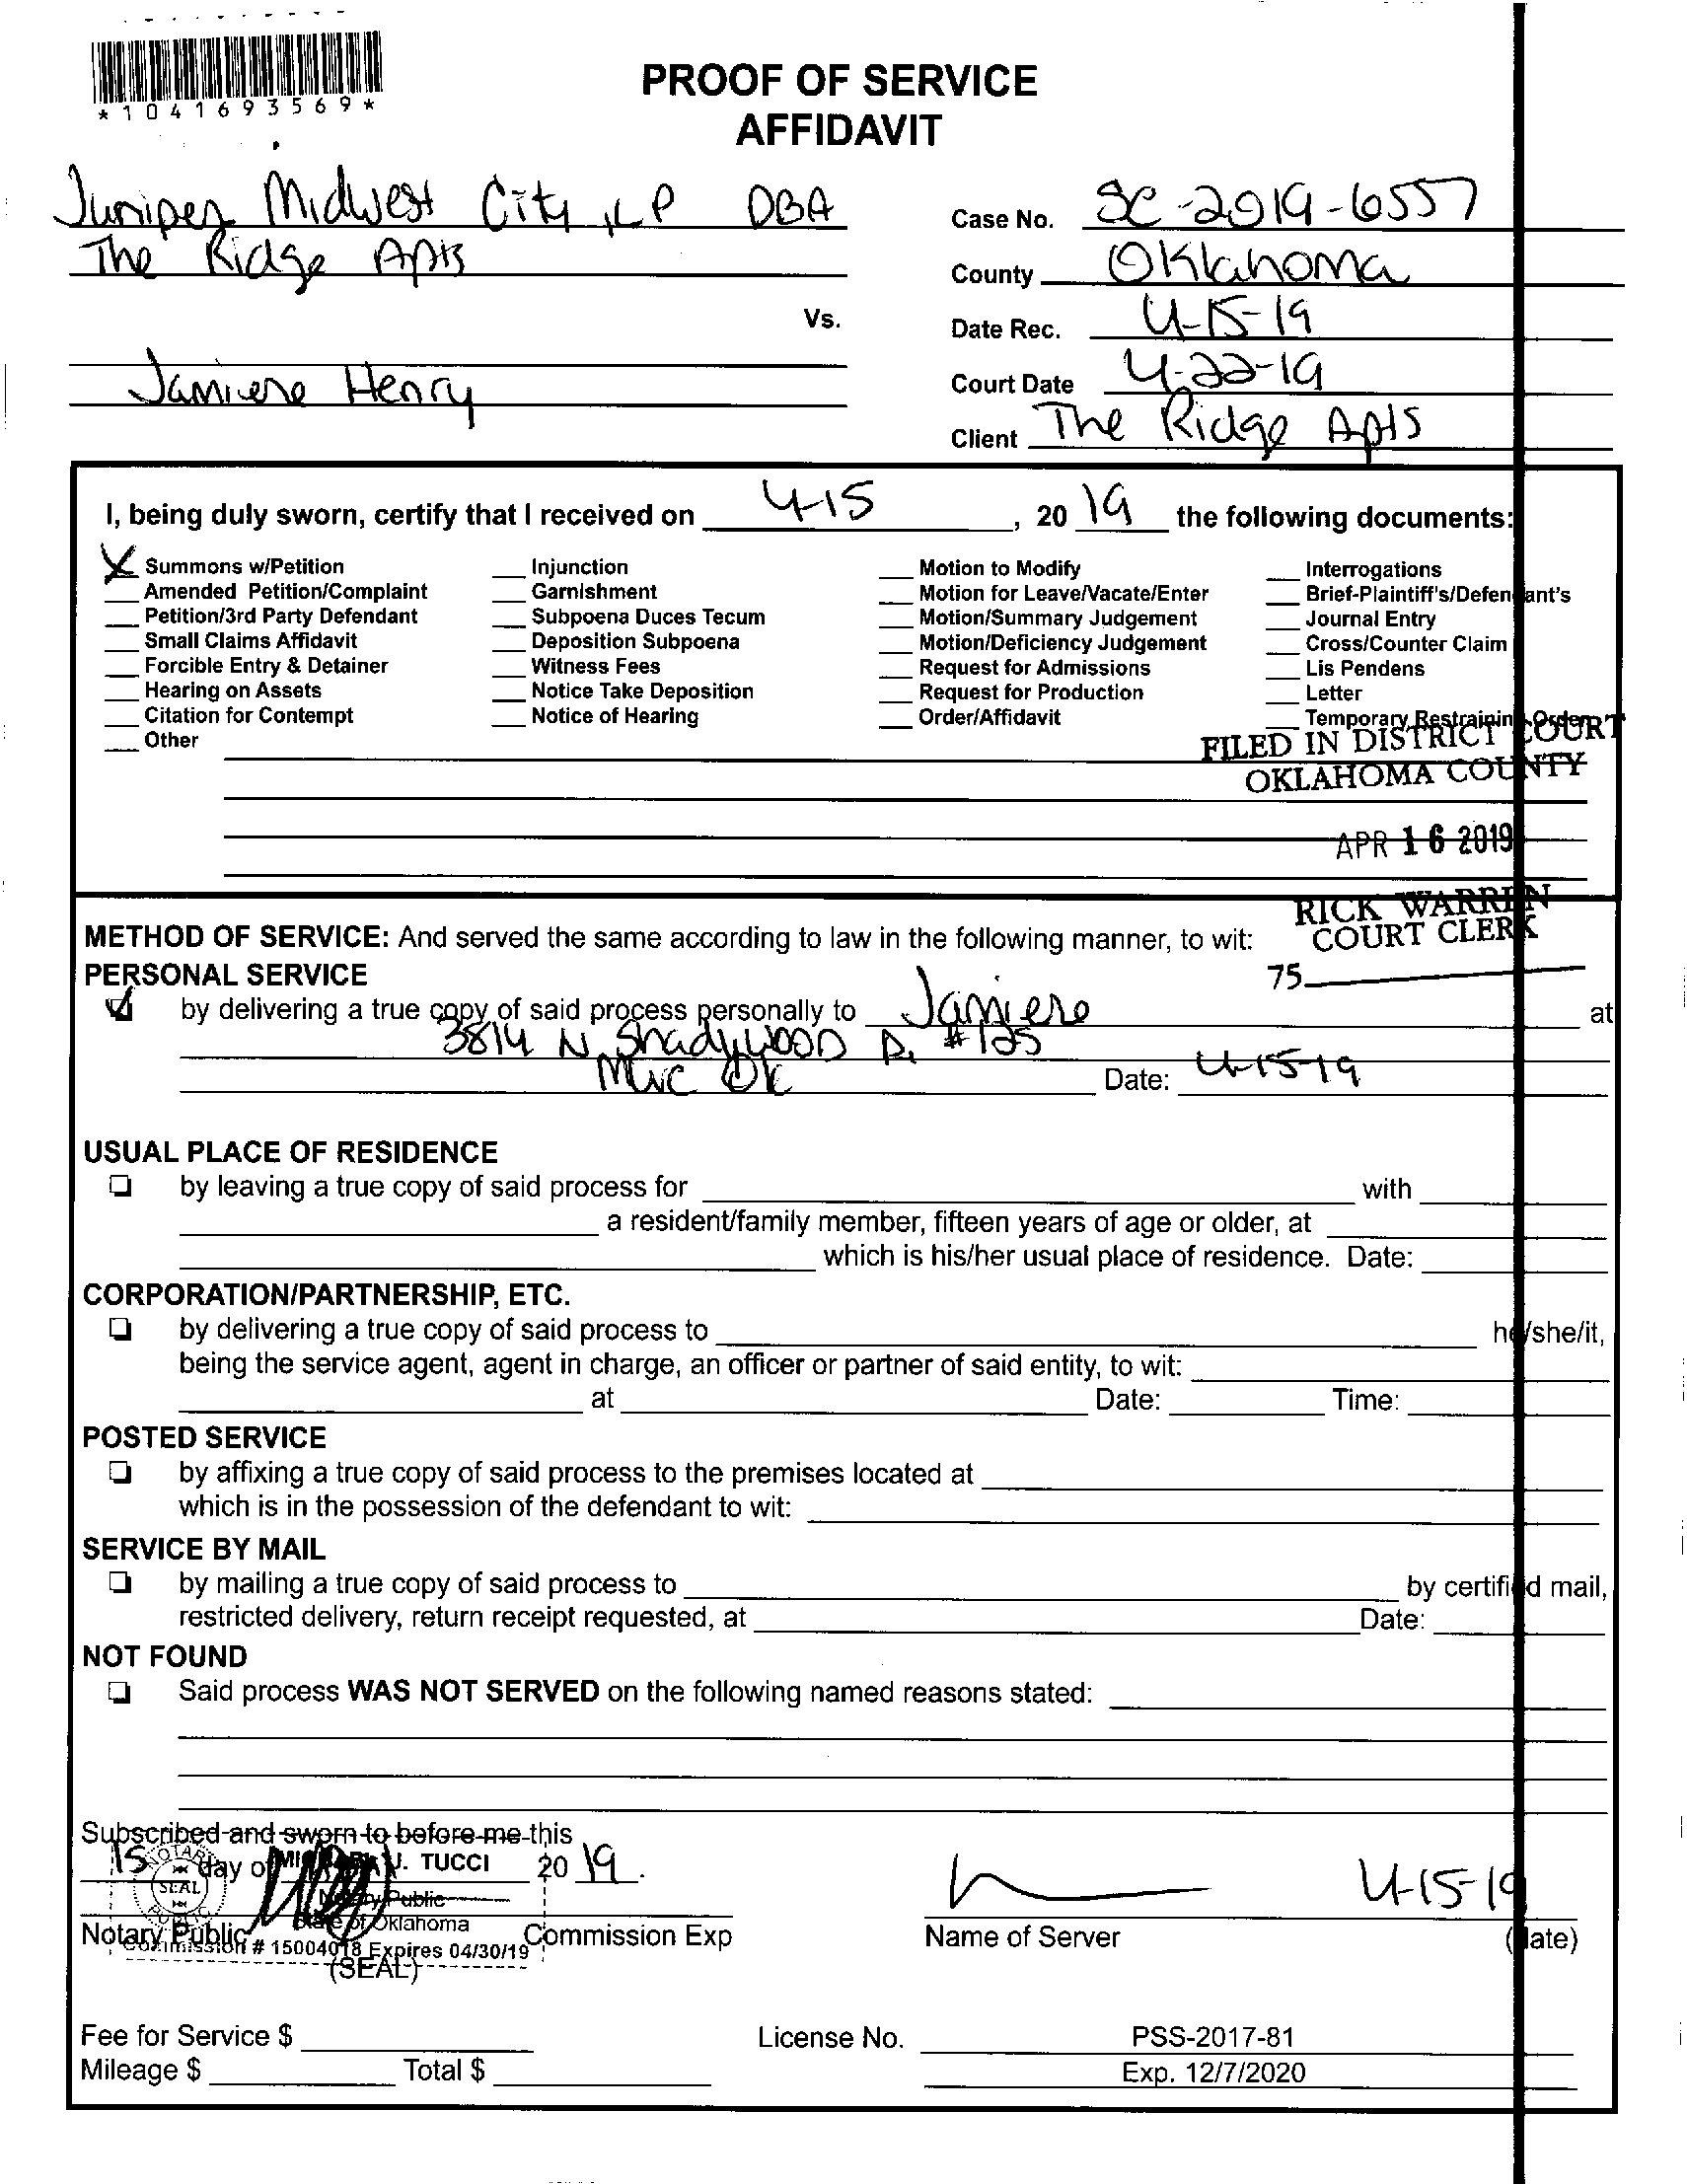 *1041693569*
PROOF OF SERVICE
AFFIDAVIT
Juniper Midwest City, LP DBA
The Ridge Apts
Vs.
Jamiere Henry
Case No. SC-2019-6557
County Oklahoma
Date Rec. 4-15-19
Court Date 4-22-19
Client The Ridge Apts
I, being duly sworn, certify that I received on 4-15, 20 19 the following documents:
X Summons w/Petition
Amended Petition/Complaint
Petition/3rd Party Defendant
Small Claims Affidavit
Forcible Entry & Detainer
Hearing on Assets
Citation for Contempt
Other
Injunction
Garnishment
Subpoena Duces Tecum
Deposition Subpoena
Witness Fees
Notice Take Deposition
Notice of Hearing
Motion to Modify
Motion for Leave/Vacate/Enter
Motion/Summary Judgement
Motion/Deficiency Judgement
Request for Admissions
Request for Production
Order/Affidavit
Interrogations
Brief-Plaintiff's/Defendant's
Journal Entry
Cross/Counter Claim
Lis Pendens
Letter
Temporary Restraining Order
FILED IN DISTRICT COURT
OKLAHOMA COUNTY
APR 16 2019
RICK WARREN
COURT CLERK
75
METHOD OF SERVICE: And served the same according to law in the following manner, to wit:
PERSONAL SERVICE
by delivering a true copy of said process personally to Jamiere at
3814 N Shadywood D. #125
MWC OK Date: 4-15-19
USUAL PLACE OF RESIDENCE
by leaving a true copy of said process for with
a resident/family member, fifteen years of age or older, at
which is his/her usual place of residence. Date:
CORPORATION/PARTNERSHIP, ETC.
by delivering a true copy of said process to he/she/it,
being the service agent, agent in charge, an officer or partner of said entity, to wit:
at Date: Time:
POSTED SERVICE
by affixing a true copy of said process to the premises located at
which is in the possession of the defendant to wit:
SERVICE BY MAIL
by mailing a true copy of said process to by certified mail,
restricted delivery, return receipt requested, at Date:
NOT FOUND
Said process WAS NOT SERVED on the following named reasons stated:
Subscribed and sworn to before me this
15 day of 20 19.
J. TUCCI
Notary Public
State of Oklahoma
Commission # 15004018 Expires 04/30/19
NOTARY PUBLIC
SEAL
Notary Public Commission Exp
(SEAL)
4-15-19
Name of Server (Date)
Fee for Service $ License No. PSS-2017-81
Mileage $ Total $ Exp. 12/7/2020